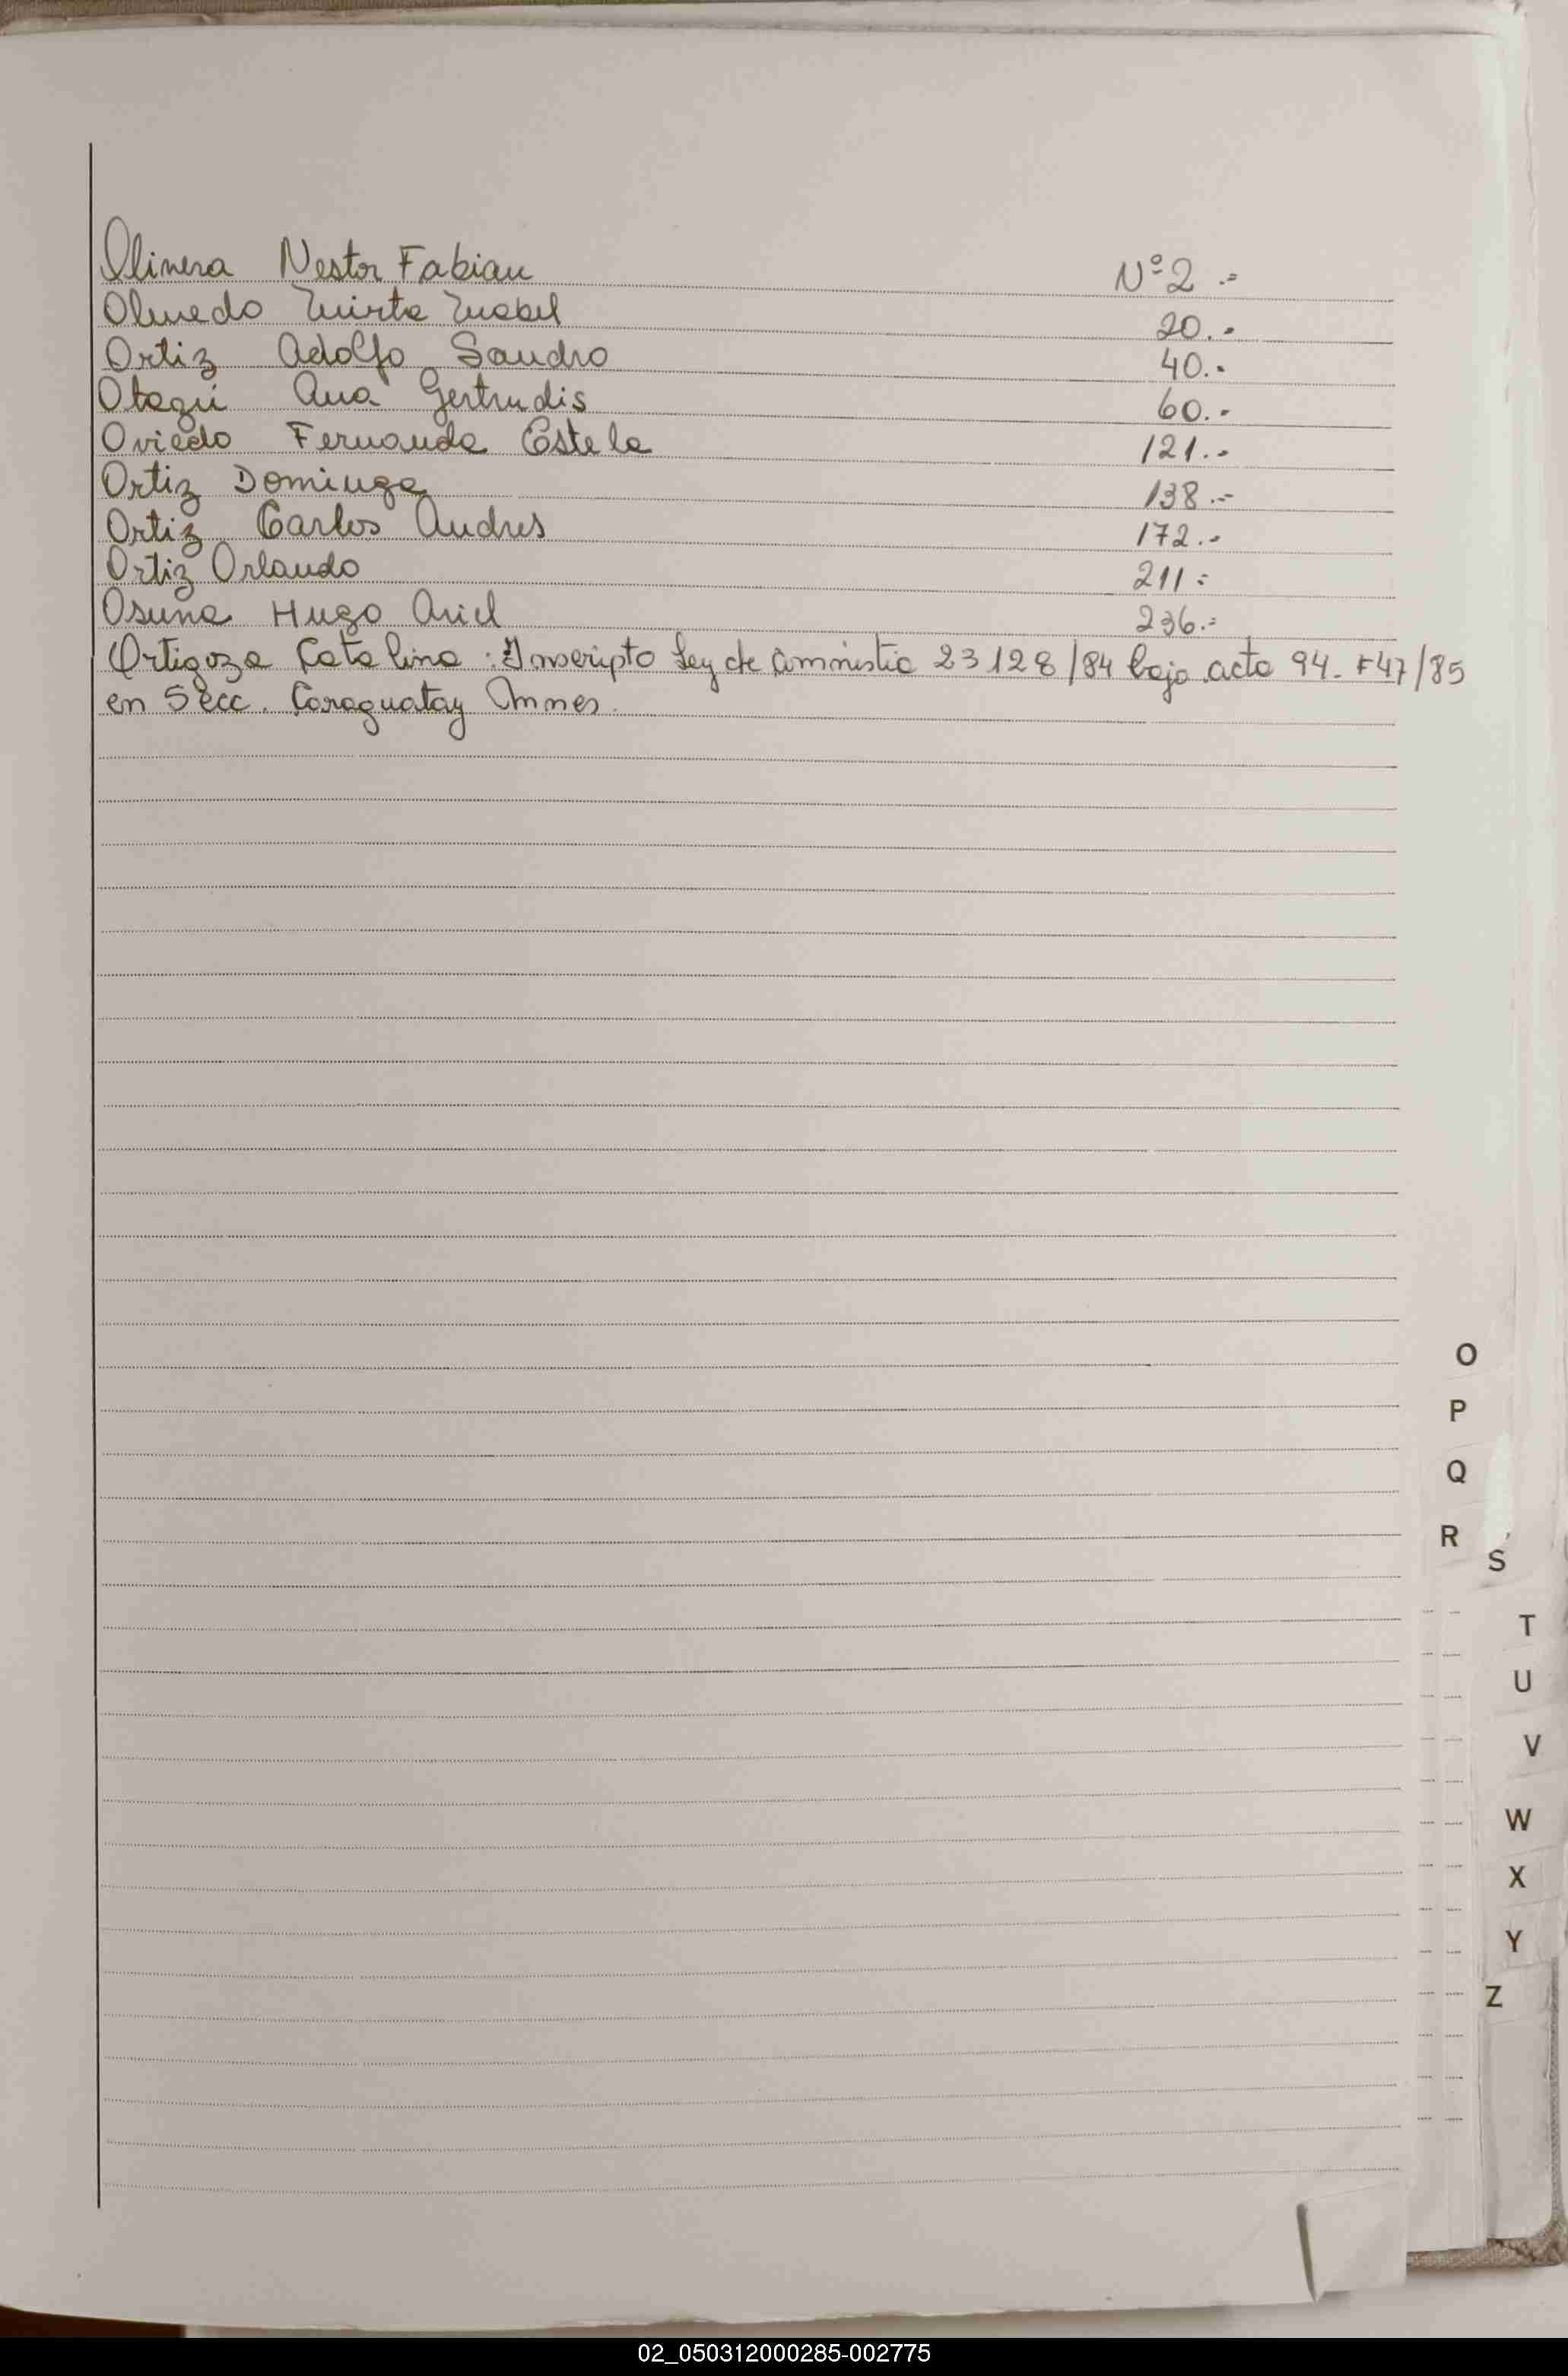 Olivera Nestor Fabian Nº 2.=
Olmedo Mirta Mabel 20.-
Ortiz Adolfo Sandro 40.-
Otegui Ana Gertrudis 60.-
Oviedo Fernanda Estela 121.-
Ortiz Dominga 138.-
Ortiz Carlos Andres 172.-
Ortiz Orlando 211=
Osuna Hugo Ariel 236.=
Ortigoza Catalina: Inscripto Ley de Amnistia 23128/84 bajo acta 94. F47/85
en Secc. Caraguatay Mnes.
O
P
Q
R
S
T
U
V
W
X
Y
Z
02_050312000285-002775